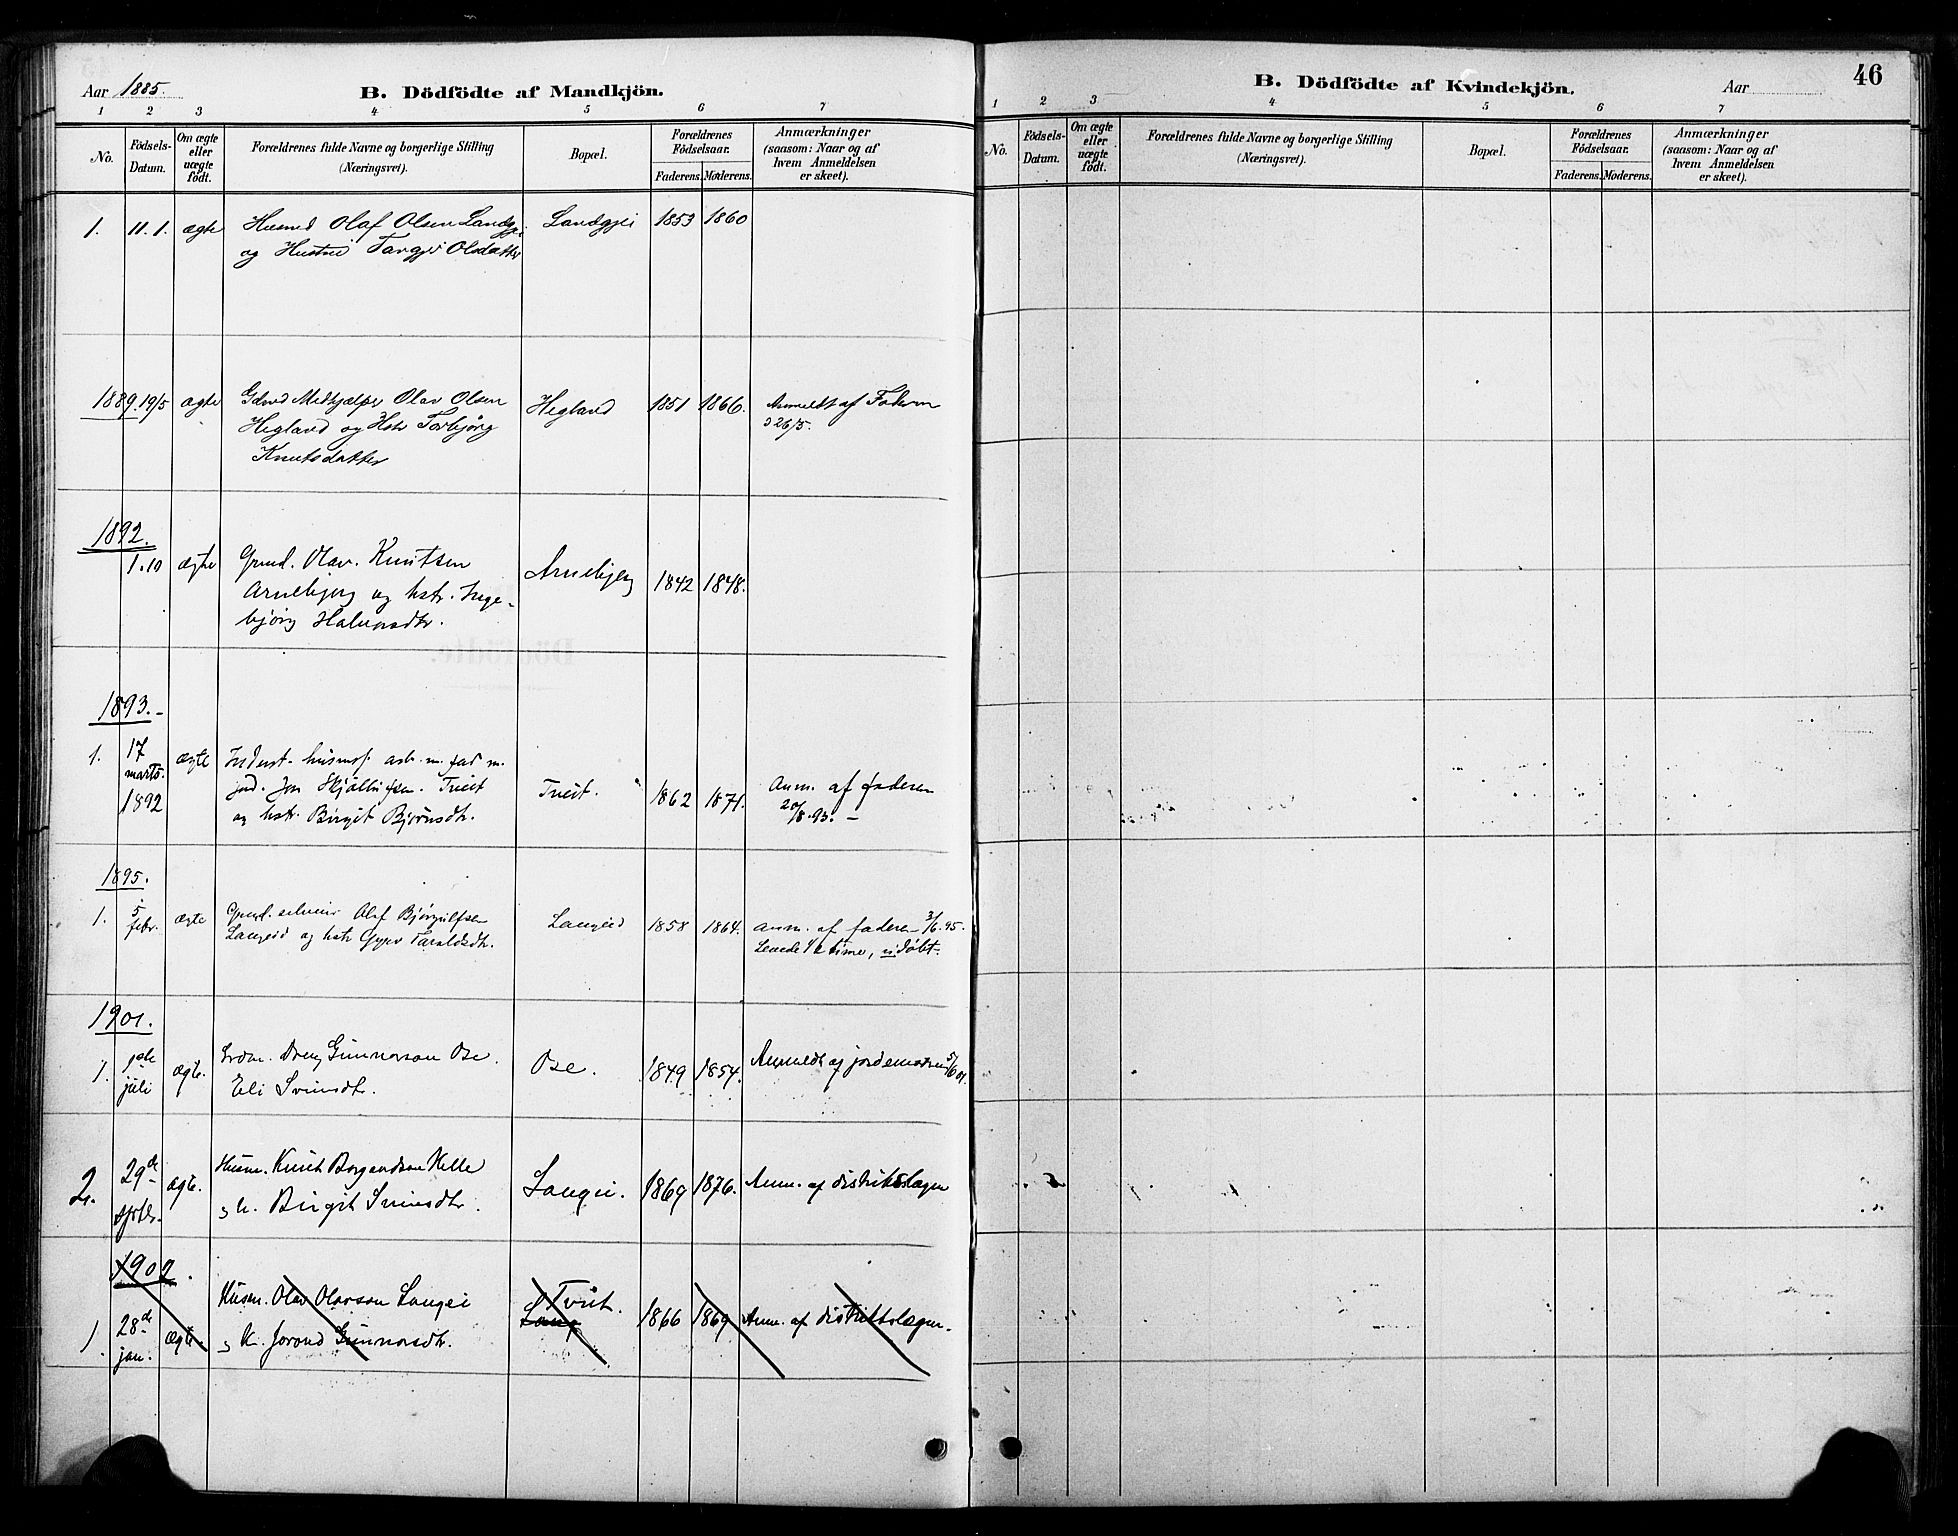 Aar 1885.
B. Dödfödte af Mandkjön.
1 2 3 4 5 6 7
No.
Födsels-Datum.
Om ægte eller uægte födt.
Forældrenes fulde Navne og borgerlige Stilling (Næringsvei).
Bopæl.
Forældrenes Födselsaar.
Faderens. Moderens.
Anmærkninger (saasom: Naar og af hvem Anmeldelsen er skeet).
1. 11.1. ægte Husmd Olaf Olsen Landgjei Landgjei 1853 1860
og Hustru Targjer Olsdatter
1889. 19/5 ægte Gdmd Medhjælper Olav Olsen Hegland 1851 1866. Anmeldt af Faderen
Hegland og Hstr Torbjørg 26/5.
Knutsdatter
1892.
1.10 ægte Grmd. Olav Knutsen Arnebjerg 1842 1848.
Arnebjerg og hstr. Inge-
bjørg Halvorsdtr.
1893.
1. 17 marts. 1892 ægte Inderst. husmsf. arb. m. fad m.
jord. Jon Skjølbufsen Treit Treit. 1862 1871. Anm. af faderen
og hstr. Birgit Bjørnsdtr. 20/8.93.
1895.
1. 5 febr. ægte Grmd. selveier Olaf Bjørgulfsen Langeid 1858 1864. Anm. af faderen 3/6.95.
Langeid og hstr Gyro Taraldsdtr. Levede 1/2 time, udøbt.
1901.
1. 1ste juli ægte. Dreng Gunnarson Ose. Ose. 1849 1854. Anmeldt af jordemoderen 5/6 01.
Eli Svensdtr.
2. 29de sptbr. ægte. Husm. Knut Helle Langei. 1869 1876. Anm. af distriktslægen
h. Birgit Svensdtr.
1902.
1. 28de jan. ægte. Husm. Olav Olavson Langei Tveit. 1866 1869 Anm. af distriktslægen.
Jorond Gunnarsdtr. Lang
B. Dödfödte af Kvindekjön.
Aar
46
1 2 3 4 5 6 7
No.
Födsels-Datum.
Om ægte eller uægte födt.
Forældrenes fulde Navne og borgerlige Stilling (Næringsvei).
Bopæl.
Forældrenes Födselsaar.
Faderens. Moderens.
Anmærkninger (saasom: Naar og af hvem Anmeldelsen er skeet).